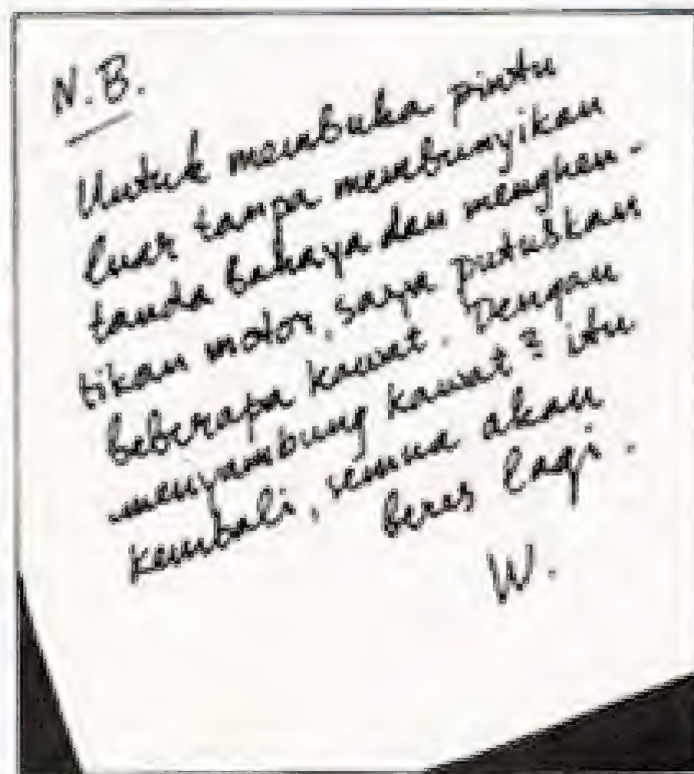 N.B.
Untuk membuka pintu
luar tanpa membunyikan
tanda bahaya dan menghen-
tikan motor, saya putuskan
beberapa kawat. Dengan
menyambung kawat2 itu
kembali, semua akan
beres lagi.
W.